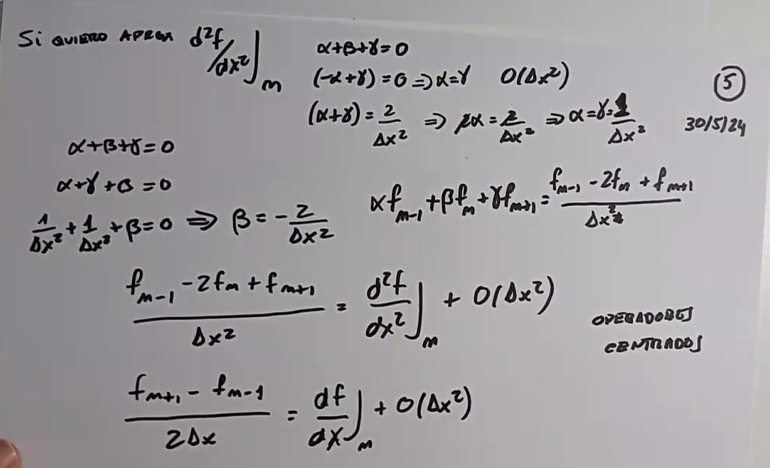 Si QUIERO APROX d²f/dx²]ₘ α+β+γ=0
(-α+γ)=0 ⇒ α=γ O(Δx²)
(α+γ)= 2/Δx² ⇒ 2α= 2/Δx² ⇒ α=γ=1/Δx²
⑤
30/5/24
α+β+γ=0
α+γ+β=0
1/Δx² + 1/Δx² + β=0 ⇒ β = -2/Δx²
αfₘ₋₁+βfₘ+γfₘ₊₁ = (fₘ₋₁ - 2fₘ + fₘ₊₁)/Δx²
(fₘ₋₁ - 2fₘ + fₘ₊₁)/Δx² = d²f/dx²]ₘ + O(Δx²)
OPERADORES
CENTRADOS
(fₘ₊₁ - fₘ₋₁)/2Δx = df/dx]ₘ + O(Δx²)